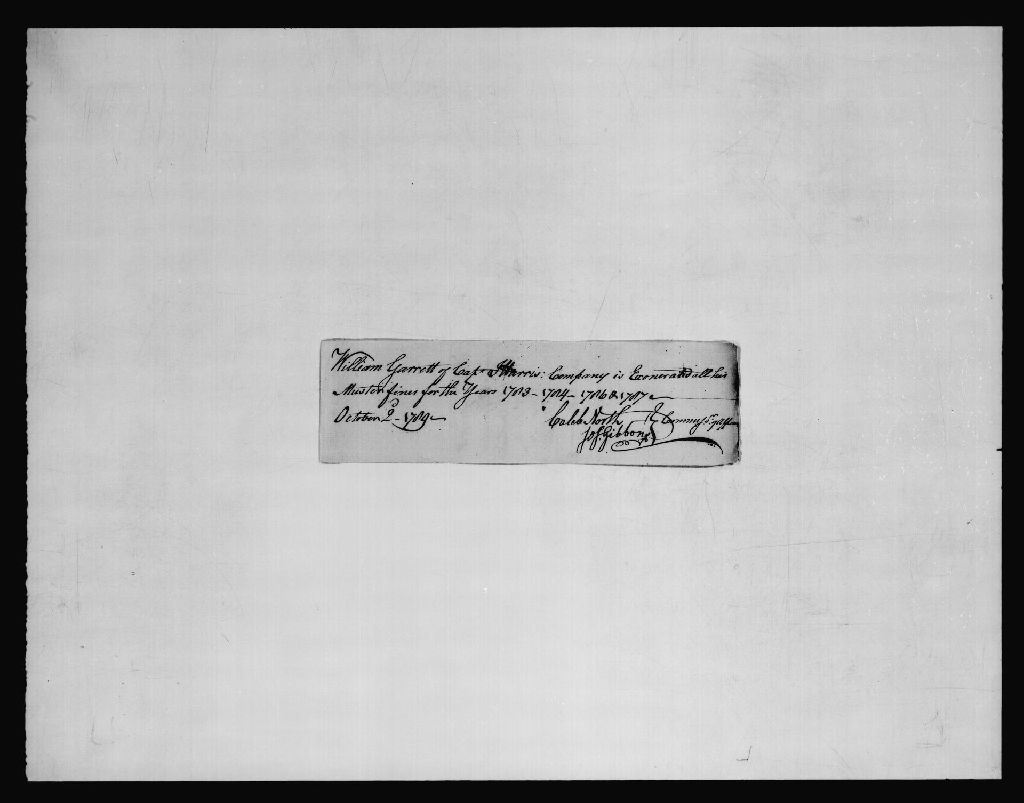 William Garrett of Capt Company is Exonerated all his
Muster fines for the Years 1783 - 1784 - 1786 & 1787
October 2d - 1789
Caleb North
Jos. Gibbons